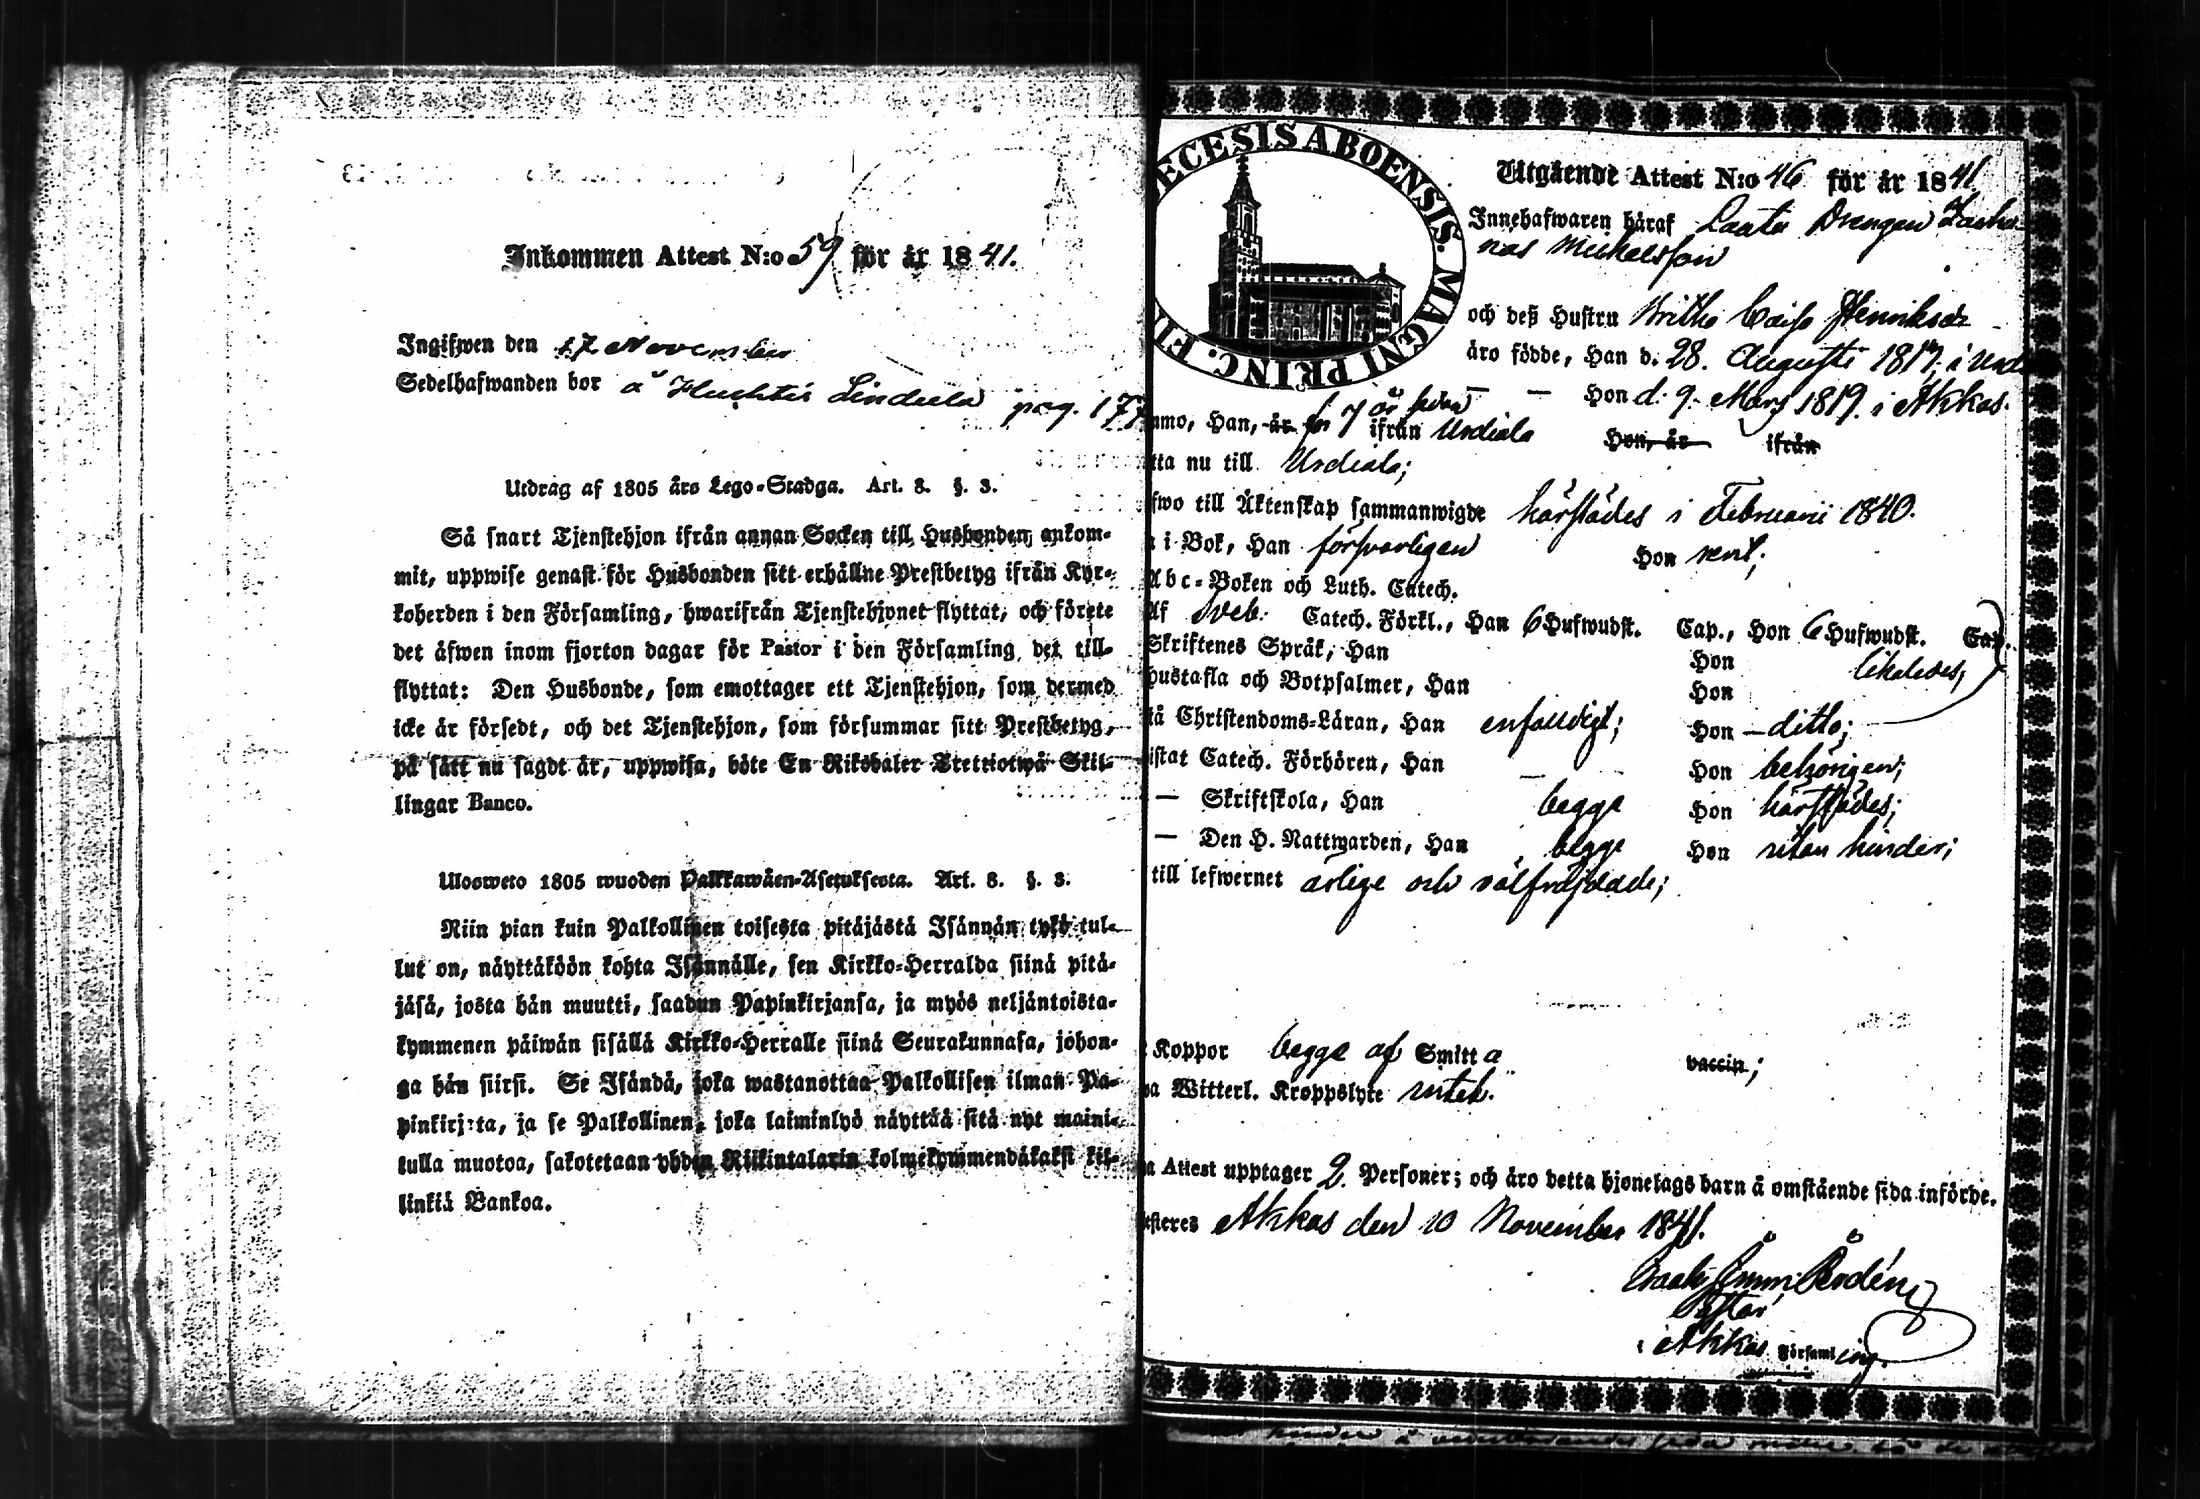 Inkommen Attest N:o 59 för år 1841.
Ingifwen den 17 November
Sedelhafwanden bor å Huhtis Lindula pag. 177
Utdrag af 1805 års Lego-Stadga. Art. 8. §. 3.
Så snart Tjenstehjon ifrån annan Socken till Husbonden ankom-
mit, uppwise genast för Husbonden sitt erhållne Prestbetyg ifrån Kyr-
koherden i den Församling, hwarifrån Tjenstehjonet flyttat, och förete
det äfwen inom fjorton dagar för Pastor i den Församling det till-
flyttat: Den Husbonde, som emottager ett Tjenstehjon, som dermed
icke är försedt, och det Tjenstehjon, som försummar sitt Prestbetyg,
på sätt nu sagdt är, uppwisa, böte En Riksdaler Trettiotwå Skil-
lingar Banco.
Ulosweto 1805 wuoden Palkkawäen-Asetuksesta. Art. 8. §. 3.
Niin pian kuin Palkollinen toisesta pitäjästä Isännän tykö tul-
lut on, näyttäköön kohta Isännälle, sen Kirkko-Herralda siinä pitä-
jäsä, josta hän muutti, saadun Papinkirjansa, ja myös neljäntoista-
kymmenen päiwän sisällä Kirkko-Herralle siinä Seurakunnasa, johon-
ga hän siirsi. Se Isändä, joka wastanottaa Palkollisen ilman Pa-
pinkirjata, ja se Palkollinen, joka laiminlyö näyttää sitä nyt maini-
tulla muotoa, sakotetaan yhden Riikintalarin kolmekymmendäkaksi kil-
linkiä Bankoa.
ECESIS ABOENSIS. MAGNI PRINC. FI
Utgående Attest N:o 46 för år 1841.
Innehafwaren häraf Drengen
Michelsson
och deß Hustru Britha Caisa Henriksdr
äro födde, Han d. 28. Augusti 1817, i Urdi
— — Hon d. 9. Mars 1819. i Akkas.
mmo, Han, är för 7 år sedan ifrån Urdiala Hon, är ifrån
tta nu till Urdiala;
fwo till Äktenskap sammanwigde härstädes i Februarii 1840.
i Bok, Han försvarligen Hon rent;
Abc-Boken och Luth. Catech.
Af Sveb: Catech. Förkl., Han 6 Hufwudst. Cap., Hon 6 Hufwudst. Cap.
Skriftenes Språk, Han Hon likaledes;
hustafla och Botpsalmer, Han Hon
tå Christendoms-Läran, Han enfaldigt; Hon — ditto;
istat Catech. Förhören, Han — — Hon behörigen;
— Skriftskola, Han begge Hon härstädes;
— Den H. Nattwarden, Han begge Hon utan hinder;
till lefwernet ärlige och välfräjdade;
Koppor begge af Smitta vaccin;
na Witterl. Kroppslyte utan.
na Attest upptager 2. Personer; och äro detta hjonelags barn å omstående sida införde.
esteres Akkas den 10 November 1841.
Pastor
i Akkas Församling.